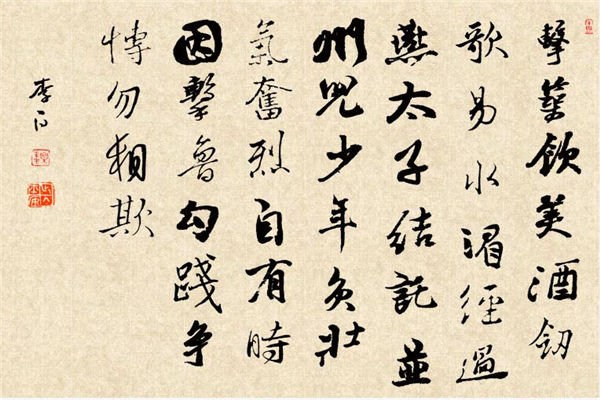 擊築飲美酒釼
歌易水湄經過
燕太子結託並
州兒少年負壯
氣奮烈自有時
因擊魯勾踐争
博勿相欺
李白